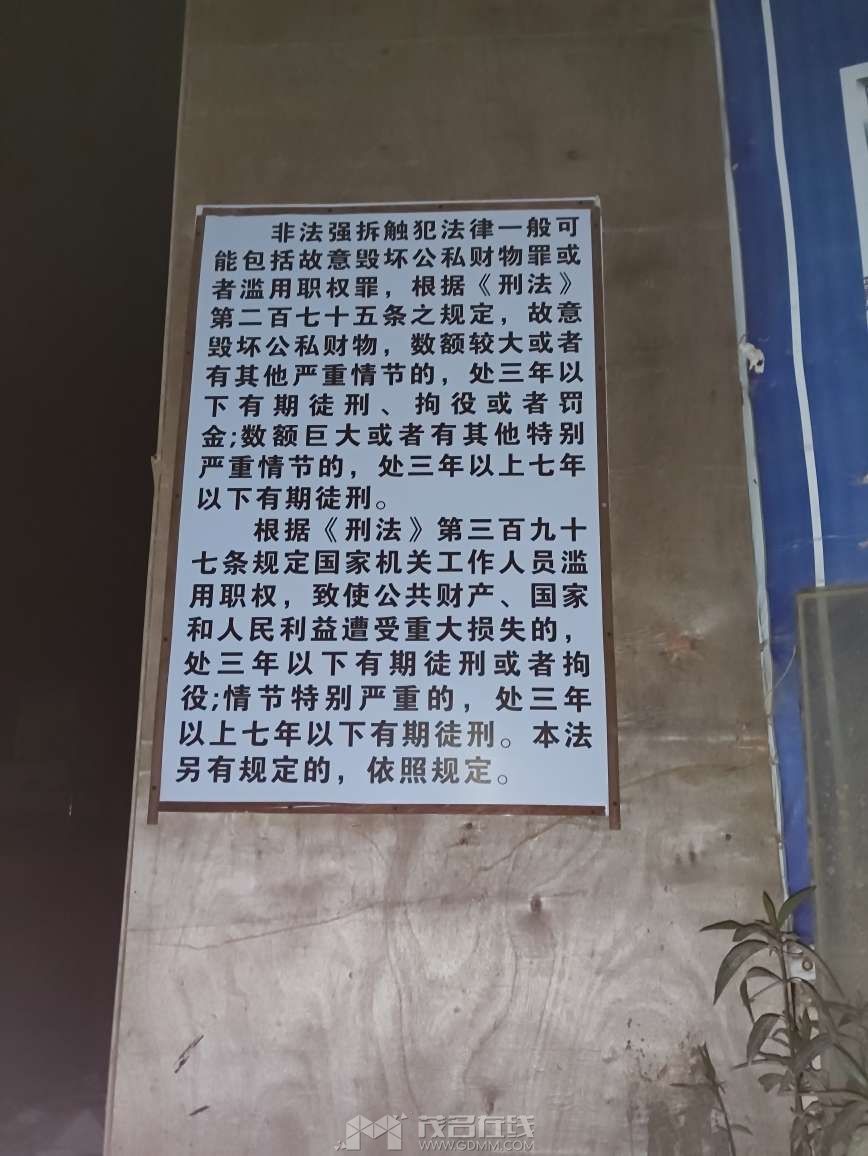 非法强拆触犯法律一般可
能包括故意毁坏公私财物罪或
者滥用职权罪，根据《刑法》
第二百七十五条之规定，故意
毁坏公私财物，数额较大或者
有其他严重情节的，处三年以
下有期徒刑、拘役或者罚
金;数额巨大或者有其他特别
严重情节的，处三年以上七年
以下有期徒刑。
根据《刑法》第三百九十
七条规定国家机关工作人员滥
用职权，致使公共财产、国家
和人民利益遭受重大损失的，
处三年以下有期徒刑或者拘
役;情节特别严重的，处三年
以上七年以下有期徒刑。本法
另有规定的，依照规定。
茂名在线
WWW.GDMM.COM